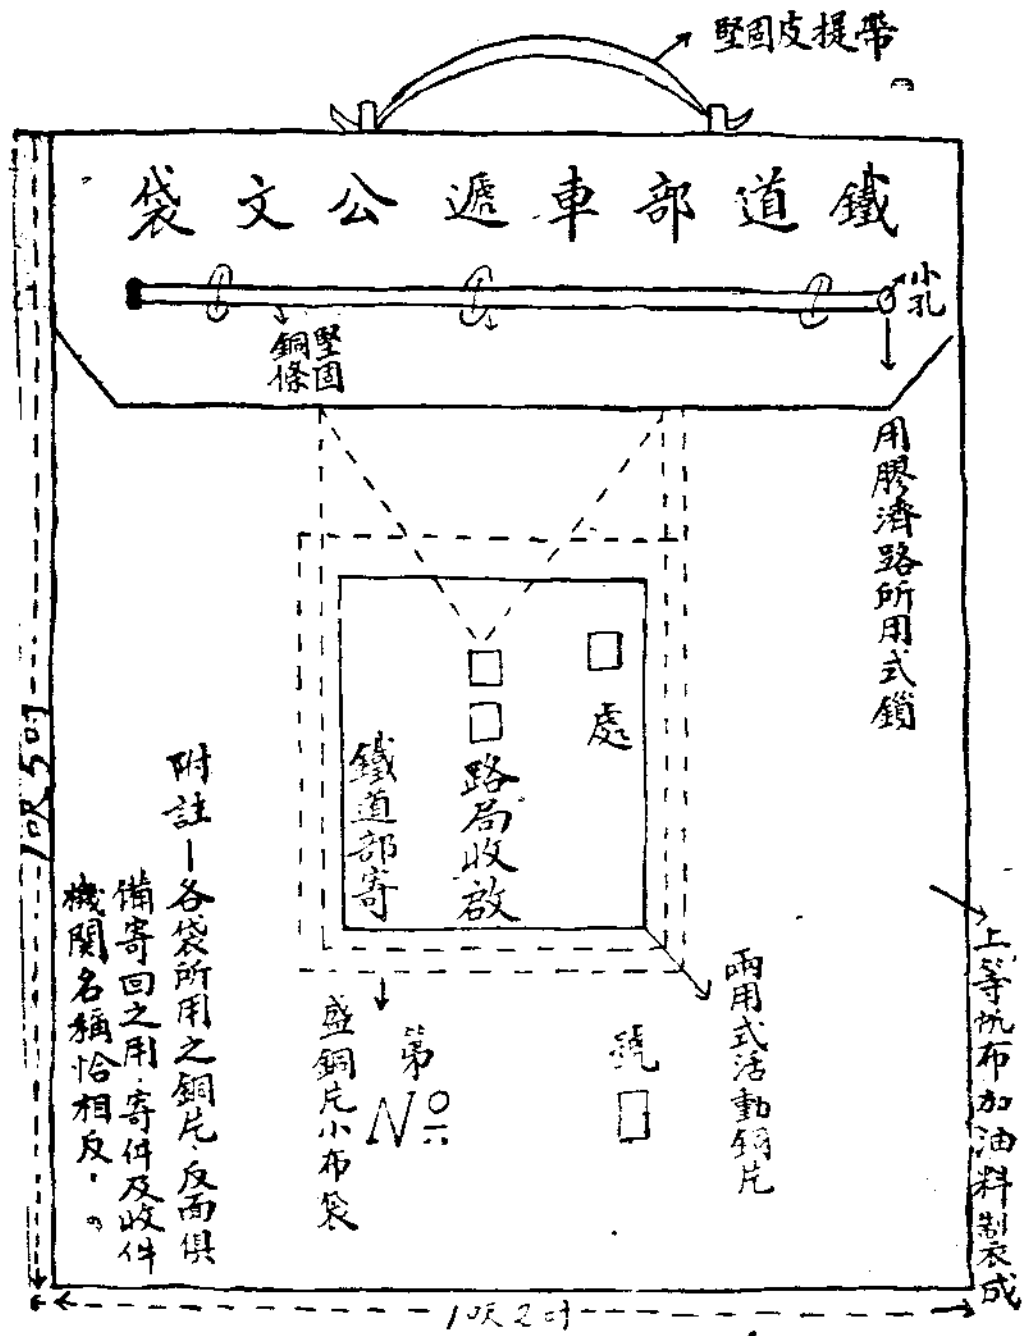 堅固皮提帶
鐵道部車遞公文袋
小孔
堅固
銅條
用膠濟路所用式鎖
□處
□□路局收啟
鐵道部寄
兩用式活動銅片
號□
第 No
盛銅片小布袋
附註—各袋所用之銅片、反面俱
備寄回之用、寄件及收件
機關名稱恰相反。
上等帆布加油料制成
1呎5吋
1呎2吋